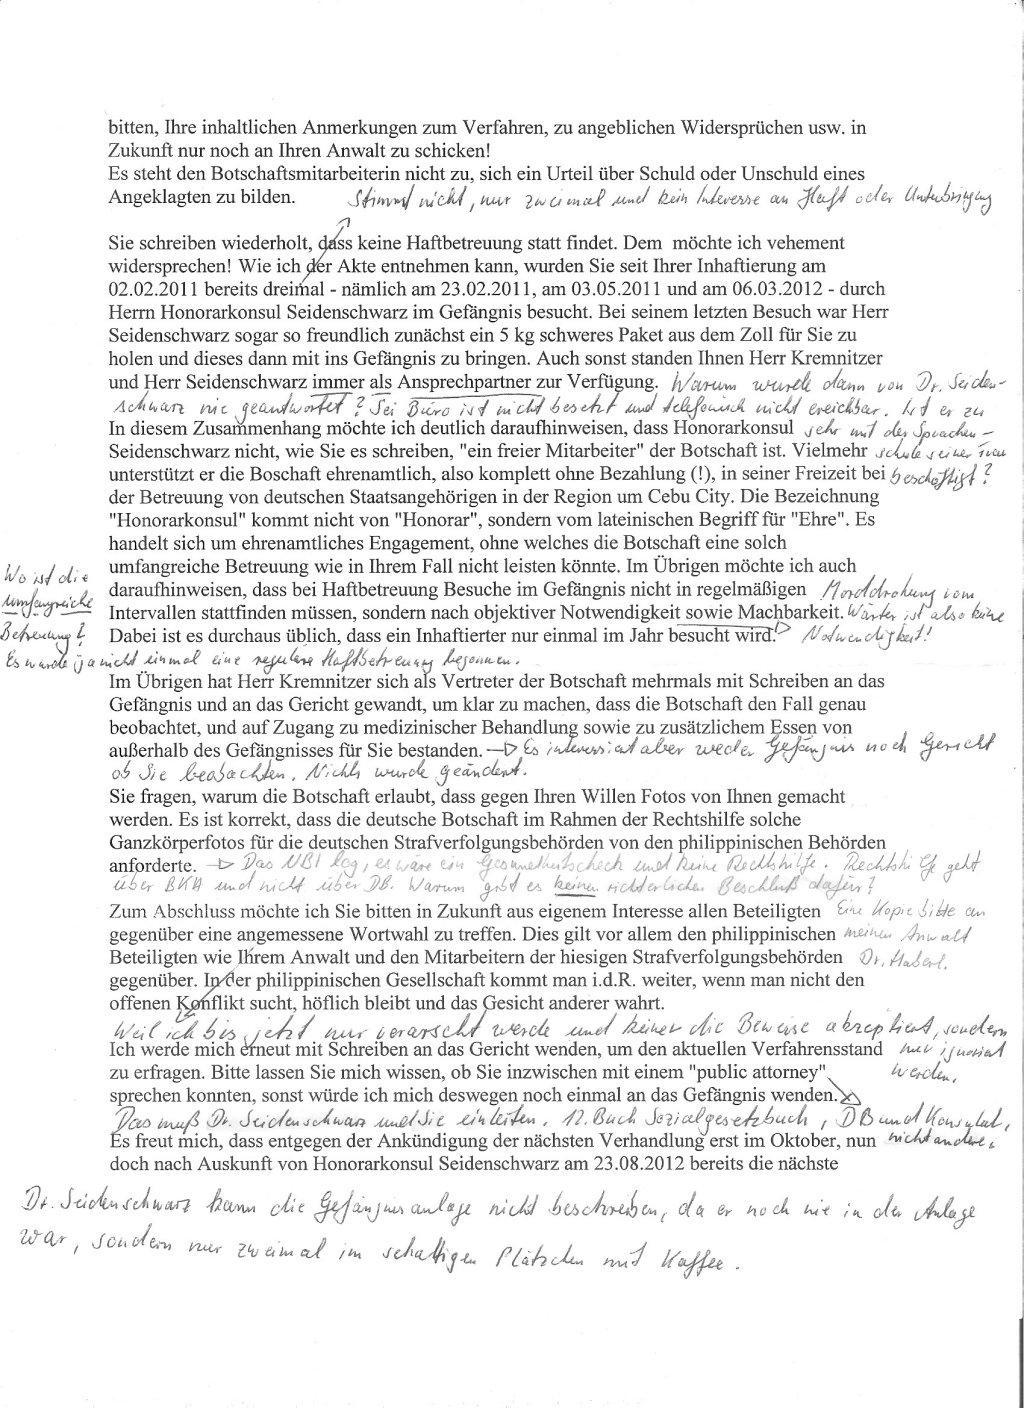 bitten, Ihre inhaltlichen Anmerkungen zum Verfahren, zu angeblichen Widersprüchen usw. in
Zukunft nur noch an Ihren Anwalt zu schicken!
Es steht den Botschaftsmitarbeiterin nicht zu, sich ein Urteil über Schuld oder Unschuld eines
Angeklagten zu bilden. Stimmt nicht, nur zweimal und kein Interesse an Haft oder Unterbringung
Sie schreiben wiederholt, dass keine Haftbetreuung statt findet. Dem möchte ich vehement
widersprechen! Wie ich der Akte entnehmen kann, wurden Sie seit Ihrer Inhaftierung am
02.02.2011 bereits dreimal - nämlich am 23.02.2011, am 03.05.2011 und am 06.03.2012 - durch
Herrn Honorarkonsul Seidenschwarz im Gefängnis besucht. Bei seinem letzten Besuch war Herr
Seidenschwarz sogar so freundlich zunächst ein 5 kg schweres Paket aus dem Zoll für Sie zu
holen und dieses dann mit ins Gefängnis zu bringen. Auch sonst standen Ihnen Herr Kremnitzer
und Herr Seidenschwarz immer als Ansprechpartner zur Verfügung. Warum wurde dann von Dr. Seiden-
schwarz nie geantwortet? Sei Büro ist nicht besetzt und telefonisch nicht ereichbar. Ist er zu
In diesem Zusammenhang möchte ich deutlich daraufhinweisen, dass Honorarkonsul sehr mit der Sprachen-
Seidenschwarz nicht, wie Sie es schreiben, "ein freier Mitarbeiter" der Botschaft ist. Vielmehr schule seiner Frau
unterstützt er die Boschaft ehrenamtlich, also komplett ohne Bezahlung (!), in seiner Freizeit bei beschäftigt?
der Betreuung von deutschen Staatsangehörigen in der Region um Cebu City. Die Bezeichnung
"Honorarkonsul" kommt nicht von "Honorar", sondern vom lateinischen Begriff für "Ehre". Es
handelt sich um ehrenamtliches Engagement, ohne welches die Botschaft eine solch
umfangreiche Betreuung wie in Ihrem Fall nicht leisten könnte. Im Übrigen möchte ich auch
Wo ist die
daraufhinweisen, dass bei Haftbetreuung Besuche im Gefängnis nicht in regelmäßigen Morddrohung vom
umfangreiche
Intervallen stattfinden müssen, sondern nach objektiver Notwendigkeit sowie Machbarkeit. Wärter ist also keine
Betreuung?
Dabei ist es durchaus üblich, dass ein Inhaftierter nur einmal im Jahr besucht wird. Notwendigkeit!
Es wurde ja nicht einmal eine reguläre Haftbetreuung begonnen.
Im Übrigen hat Herr Kremnitzer sich als Vertreter der Botschaft mehrmals mit Schreiben an das
Gefängnis und an das Gericht gewandt, um klar zu machen, dass die Botschaft den Fall genau
beobachtet, und auf Zugang zu medizinischer Behandlung sowie zu zusätzlichem Essen von
außerhalb des Gefängnisses für Sie bestanden. Es interessiert aber weder Gefängnis noch Gericht
ob Sie beobachten. Nichts wurde geändert.
Sie fragen, warum die Botschaft erlaubt, dass gegen Ihren Willen Fotos von Ihnen gemacht
werden. Es ist korrekt, dass die deutsche Botschaft im Rahmen der Rechtshilfe solche
Ganzkörperfotos für die deutschen Strafverfolgungsbehörden von den philippinischen Behörden
anforderte. Das NBI log, es wäre ein Gesundheitscheck und keine Rechtshilfe. Rechtshilfe geht
über BKA und nicht über DB. Warum gibt es keinen richterlichen Beschluß dafür?
Zum Abschluss möchte ich Sie bitten in Zukunft aus eigenem Interesse allen Beteiligten Eine Kopie bitte an
gegenüber eine angemessene Wortwahl zu treffen. Dies gilt vor allem den philippinischen meinen Anwalt
Beteiligten wie Ihrem Anwalt und den Mitarbeitern der hiesigen Strafverfolgungsbehörden Dr. Haberl.
gegenüber. In der philippinischen Gesellschaft kommt man i.d.R. weiter, wenn man nicht den
offenen Konflikt sucht, höflich bleibt und das Gesicht anderer wahrt.
Weil ich bis jetzt nur verarscht werde und keiner die Beweise akzeptiert, sondern
Ich werde mich erneut mit Schreiben an das Gericht wenden, um den aktuellen Verfahrensstand nur ignoriert
zu erfragen. Bitte lassen Sie mich wissen, ob Sie inzwischen mit einem "public attorney" werden.
sprechen konnten, sonst würde ich mich deswegen noch einmal an das Gefängnis wenden.
Das muß Dr. Seidenschwarz und Sie einleiten. 12. Buch Sozialgesetzbuch, DB und Konsulat,
Es freut mich, dass entgegen der Ankündigung der nächsten Verhandlung erst im Oktober, nun nicht andere.
doch nach Auskunft von Honorarkonsul Seidenschwarz am 23.08.2012 bereits die nächste
Dr. Seidenschwarz kann die Gefängnisanlage nicht beschreiben, da er noch nie in der Anlage
war, sondern nur zweimal im schattigen Plätzchen mit Kaffee.